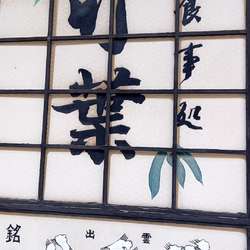 食事処
竹葉
銘 出雲